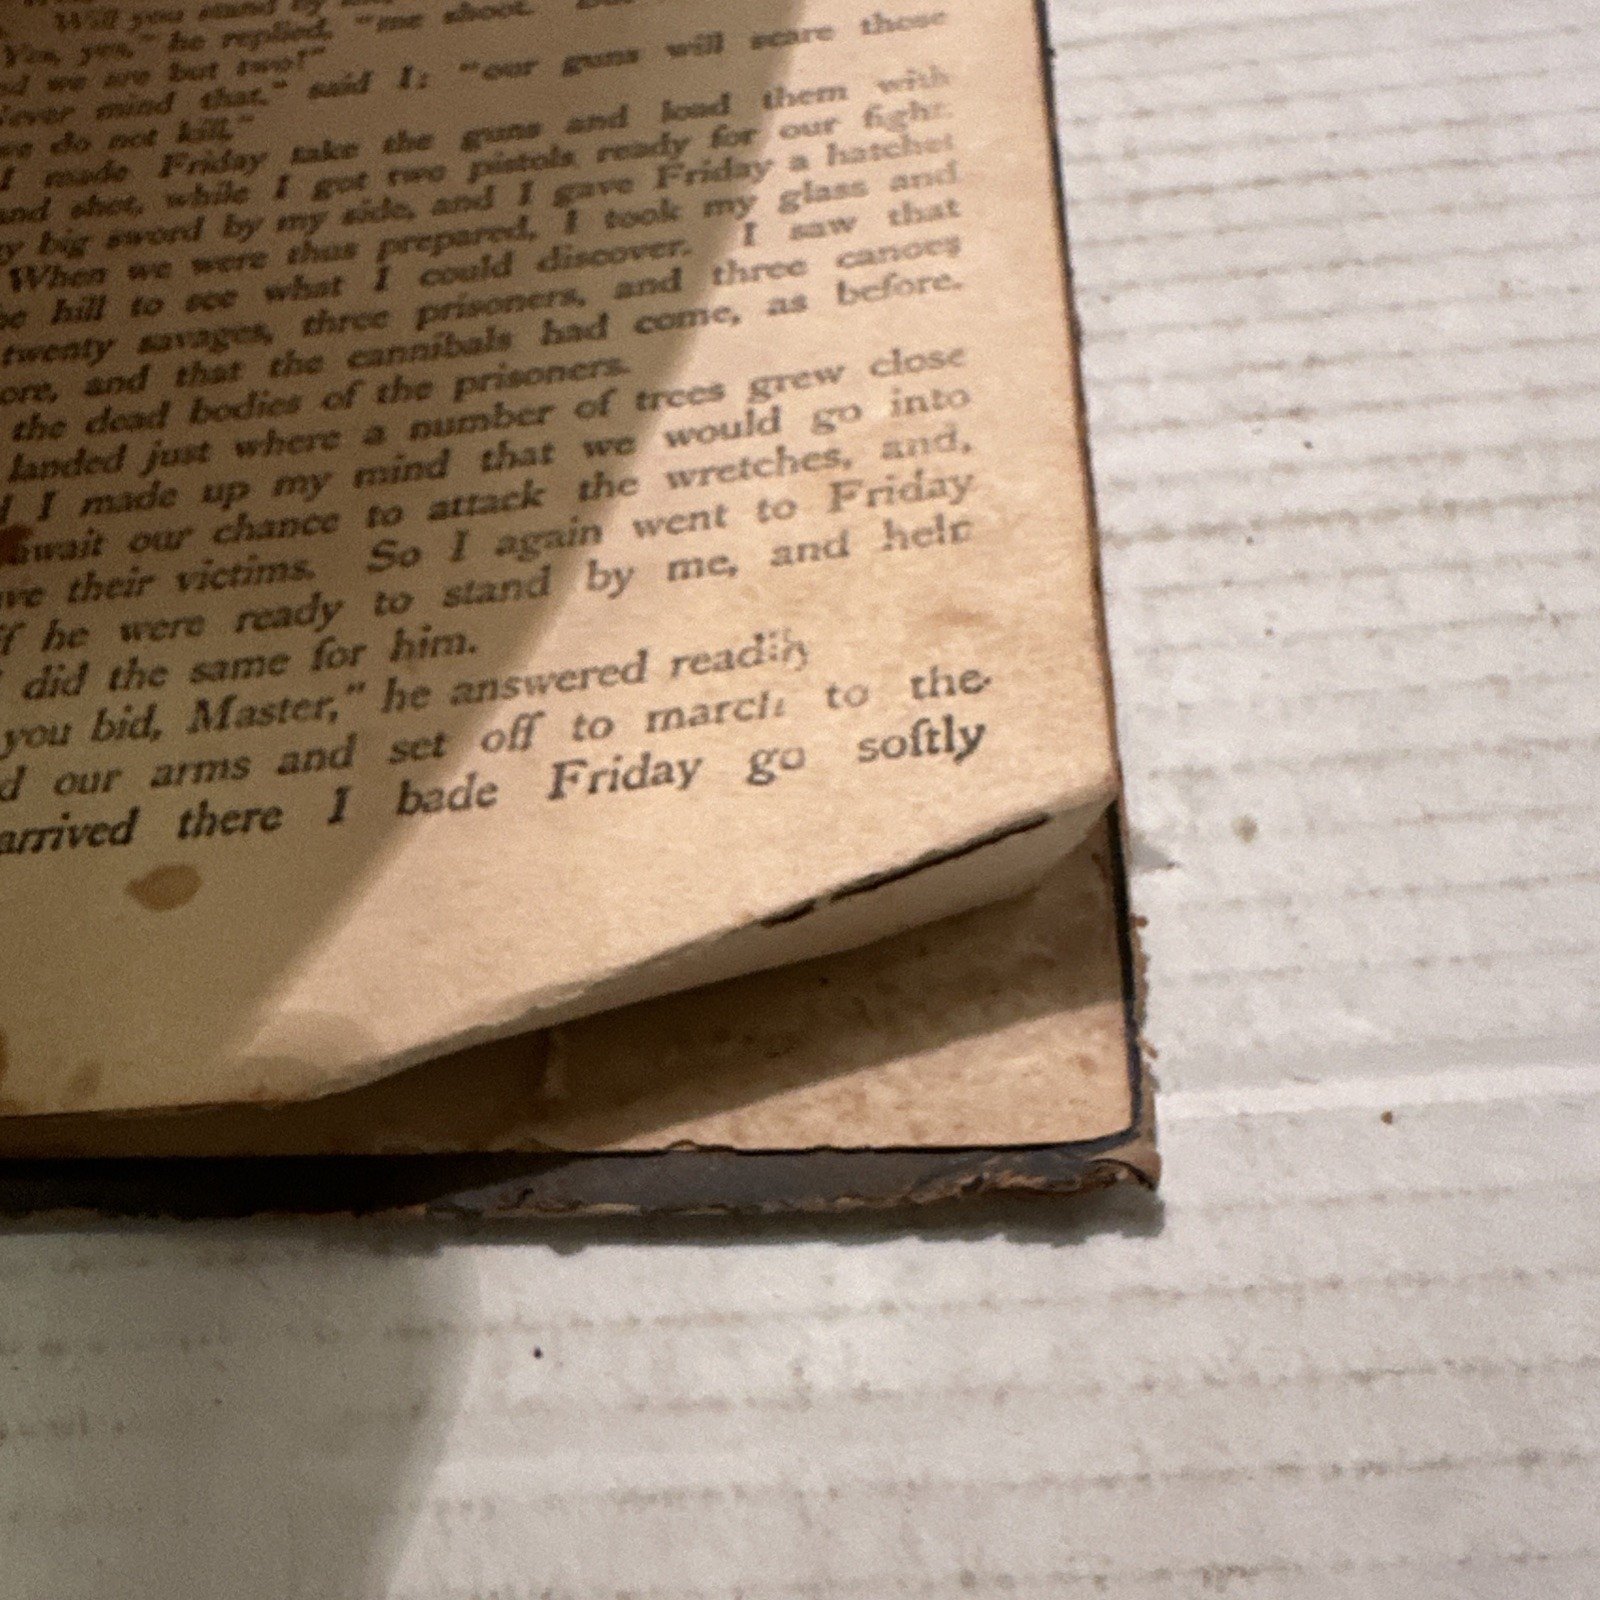 Will you stand by
Yes, yes," he replied, "me shoot.
we are but two!"
Never mind that," said I; "our guns will scare those
we do not kill."
I made Friday take the guns and load them with
and shot, while I got two pistols ready for our fight.
big sword by my side, and I gave Friday a hatchet
When we were thus prepared, I took my glass and
hill to see what I could discover. I saw that
twenty savages, three prisoners, and three canoes
ore, and that the cannibals had come, as before,
the dead bodies of the prisoners.
landed just where a number of trees grew close
I made up my mind that we would go into
await our chance to attack the wretches, and,
ve their victims. So I again went to Friday
if he were ready to stand by me, and help
did the same for him.
you bid, Master," he answered readily
d our arms and set off to march to the
arrived there I bade Friday go softly